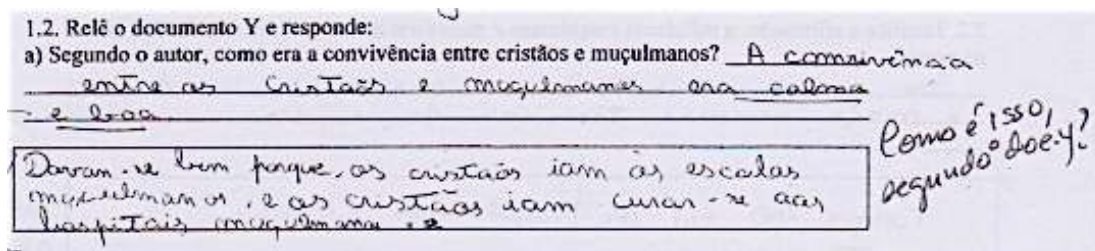 1.2. Relê o documento Y e responde:
a) Segundo o autor, como era a convivência entre cristãos e muçulmanos? A comnivência
entre os Cristãos e moçulmanos era calma
e boa.
Como é isso,
segundo o doc. Y?
Davam-se bem porque, os cristãos iam às escolas
muçulmanas, e os cristãos iam curar-se aos
hospitais muçulmanos